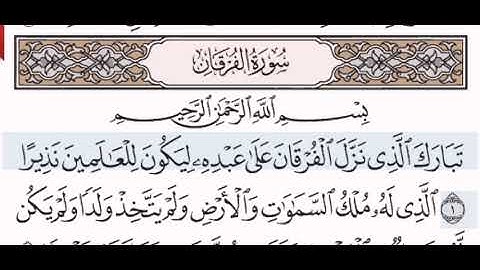 سُورَةُ الْفُرْقَانِ
بِسْمِ اللَّهِ الرَّحْمَٰنِ الرَّحِيمِ
تَبَارَكَ الَّذِي نَزَّلَ الْفُرْقَانَ عَلَىٰ عَبْدِهِ لِيَكُونَ لِلْعَالَمِينَ نَذِيرًا
١ الَّذِي لَهُ مُلْكُ السَّمَاوَاتِ وَالْأَرْضِ وَلَمْ يَتَّخِذْ وَلَدًا وَلَمْ يَكُن